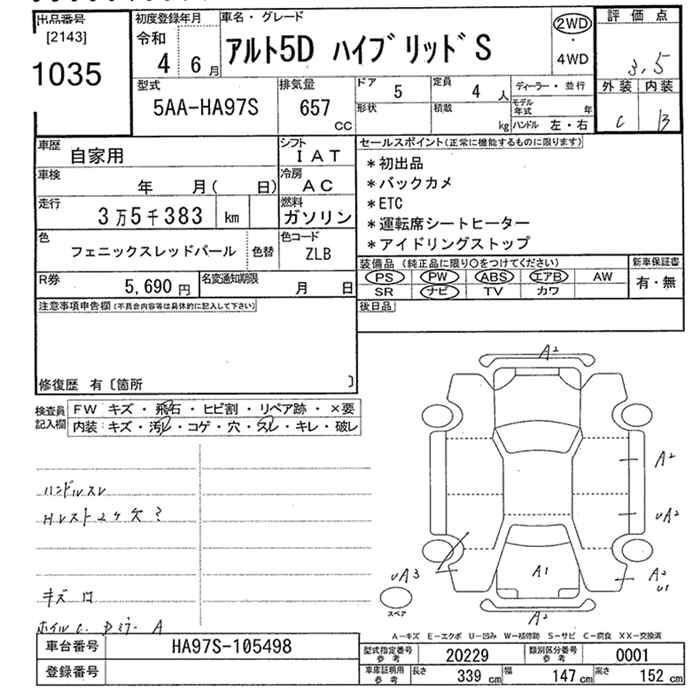 出品番号
[2143]
1035
初度登録年月
令和
4 6月
車名・グレード
アルト5D ハイブリッドS
2WD
・
4WD
評価点
3.5
外装 内装
C B
型式
5AA-HA97S
排気量
657
CC
ドア
5
定員
4 人
形状
積載
kg
ディーラー・並行
モデル年式 年
ハンドル 左・右
車歴
自家用
シフト
I A T
車検
年 月( 日)
冷房
A C
走行
3万5千383 km
燃料
ガソリン
色
フェニックスレッドパール
色替
色コード
ZLB
R券
5,690 円
名変通知期限
月 日
セールスポイント(正常に機能するものに限ります)
*初出品
*バックカメ
*ETC
*運転席シートヒーター
*アイドリングストップ
装備品(純正品に限り○をつけてください)
PS PW ABS エアB AW
SR ナビ TV カワ
新車保証書
有・無
後日品
注意事項申告欄(不具合内容等は具体的に記入して下さい)
修復歴 有〔箇所 〕
検査員
記入欄
FW キズ・飛石・ヒビ割・リペア跡・×要
内装:キズ・汚レ・コゲ・穴・スレ・キレ・破レ
ハンドルスレ
キズ
ホイルC
A
A2
A2
UA2
UA3
A1
A2
U1
A2
スペア
A-キズ E-エクボ U-凹み W-補修跡 S-サビ C-腐食 XX-交換済
車台番号
HA97S-105498
登録番号
型式指定番号
参考
20229
類別区分番号
参考
0001
車庫証明用
参考
長さ
339 cm
幅
147 cm
高さ
152 cm